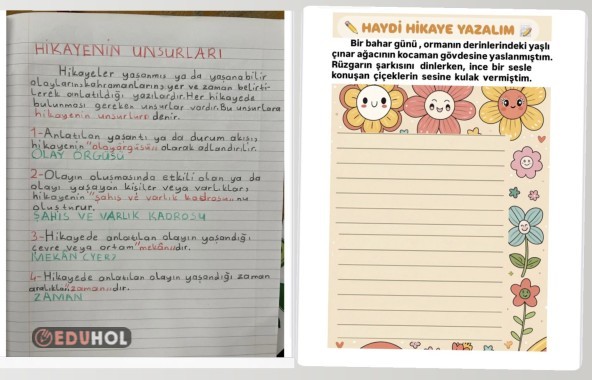 HİKAYENİN UNSURLARI
Hikayeler yaşanmış ya da yaşanabilir
olayların;kahramanların;yer ve zaman belirti-
lerek anlatıldığı yazılardır.Her hikayede
bulunması gereken unsurlar vardır.Bu unsurlara
hikayenin unsurları denir.
1-Anlatılan yaşantı ya da durum akışı,
hikayenin "olayörgüsü" olarak adlandırılır.
OLAY ÖRGÜSÜ
2-Olayın oluşmasında etkili olan ya da
olayı yaşayan kişiler veya varlıklar,
hikayenin "şahıs ve varlık kadrosu"nu
oluşturur.
ŞAHIS VE VARLIK KADROSU
3-Hikayede anlatılan olayın yaşandığı
çevre veya ortam "mekan"dır.
MEKAN (YER)
4-Hikayede anlatılan olayın yaşandığı zaman
aralıkları "zaman"dır.
ZAMAN
EDUHOL
HAYDİ HİKAYE YAZALIM
Bir bahar günü, ormanın derinlerindeki yaşlı
çınar ağacının kocaman gövdesine yaslanmıştım.
Rüzgarın şarkısını dinlerken, ince bir sesle
konuşan çiçeklerin sesine kulak vermiştim.